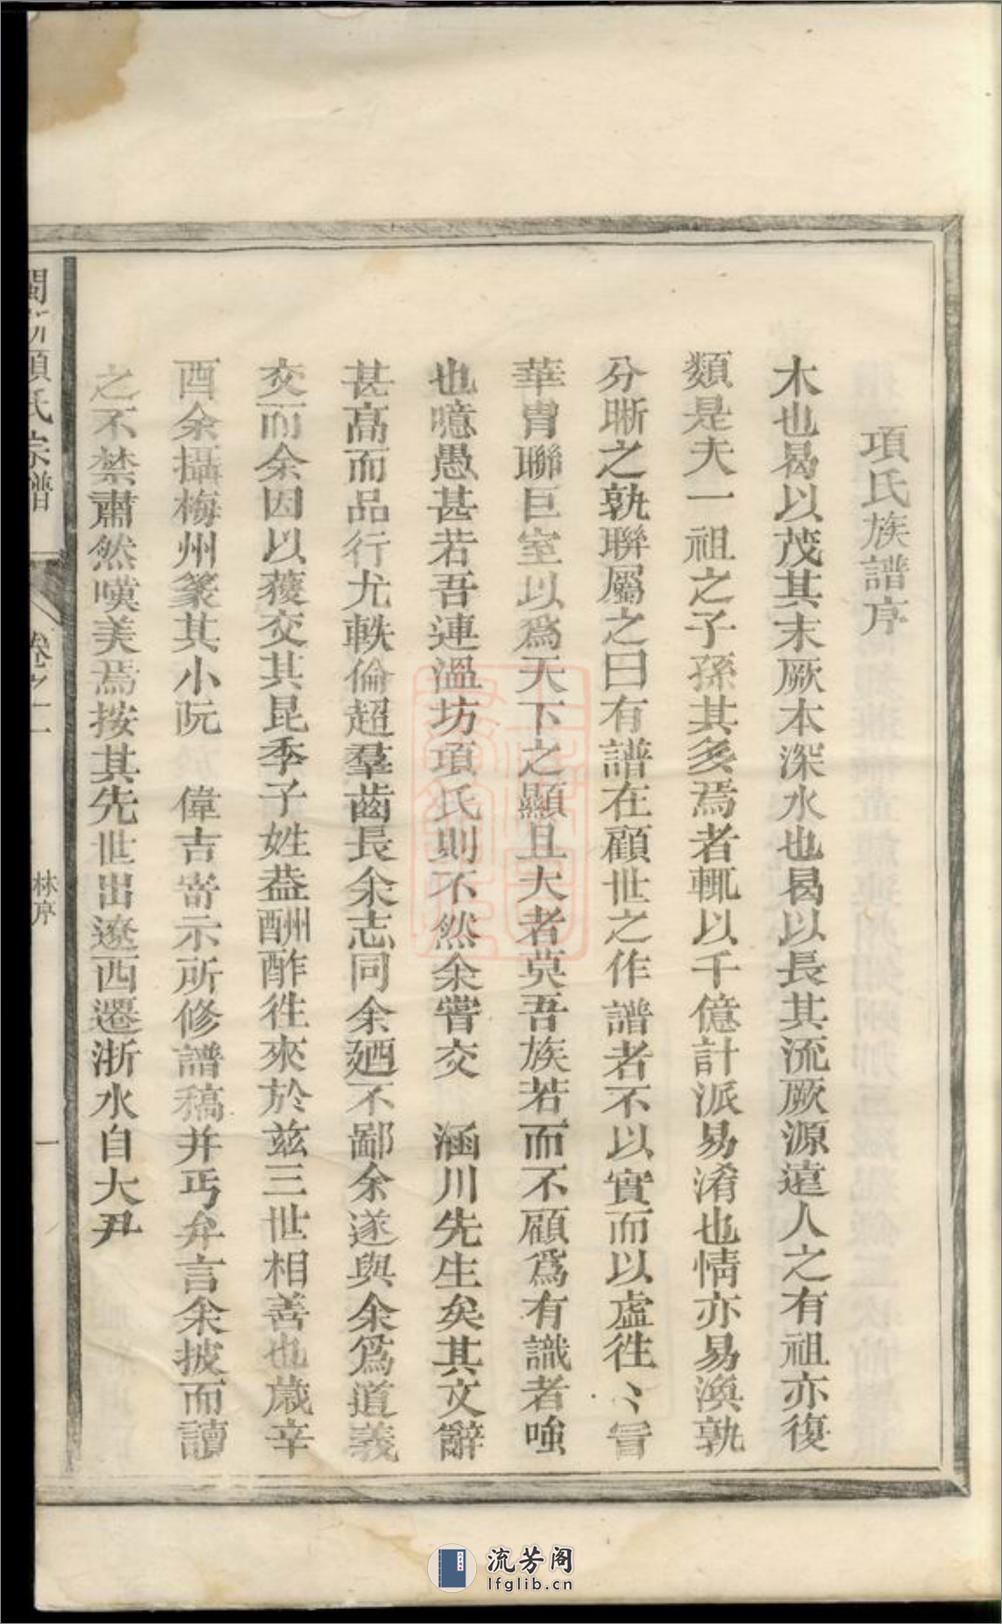 項氏族譜序
木也曷以茂其末厥本深水也曷以長其流厥源遠人之有祖亦復
類是夫一祖之子孫其多焉者輒以千億計派易淆也情亦易渙孰
分晰之孰聯屬之曰有譜在顧世之作譜者不以實而以虛徃〻冒
華胄聯巨室以爲天下之顯且大者莫吾族若而不顧爲有識者嗤
也噫愚甚若吾連溫坊項氏則不然余嘗交 涵川先生矣其文辭
甚高而品行尤軼倫超羣齒長余志同余廼不鄙余遂與余爲道義
交而余因以獲交其昆季子姓葢酬酢徃來於兹三世相善也歲辛
酉余攝梅州篆其小阮 偉吉寄示所修譜稿并丐弁言余披而讀
之不禁肅然嘆美焉按其先世出遼西遷浙水自大尹
項氏宗譜
卷之一
林序
一
流芳阁
lfglib.cn